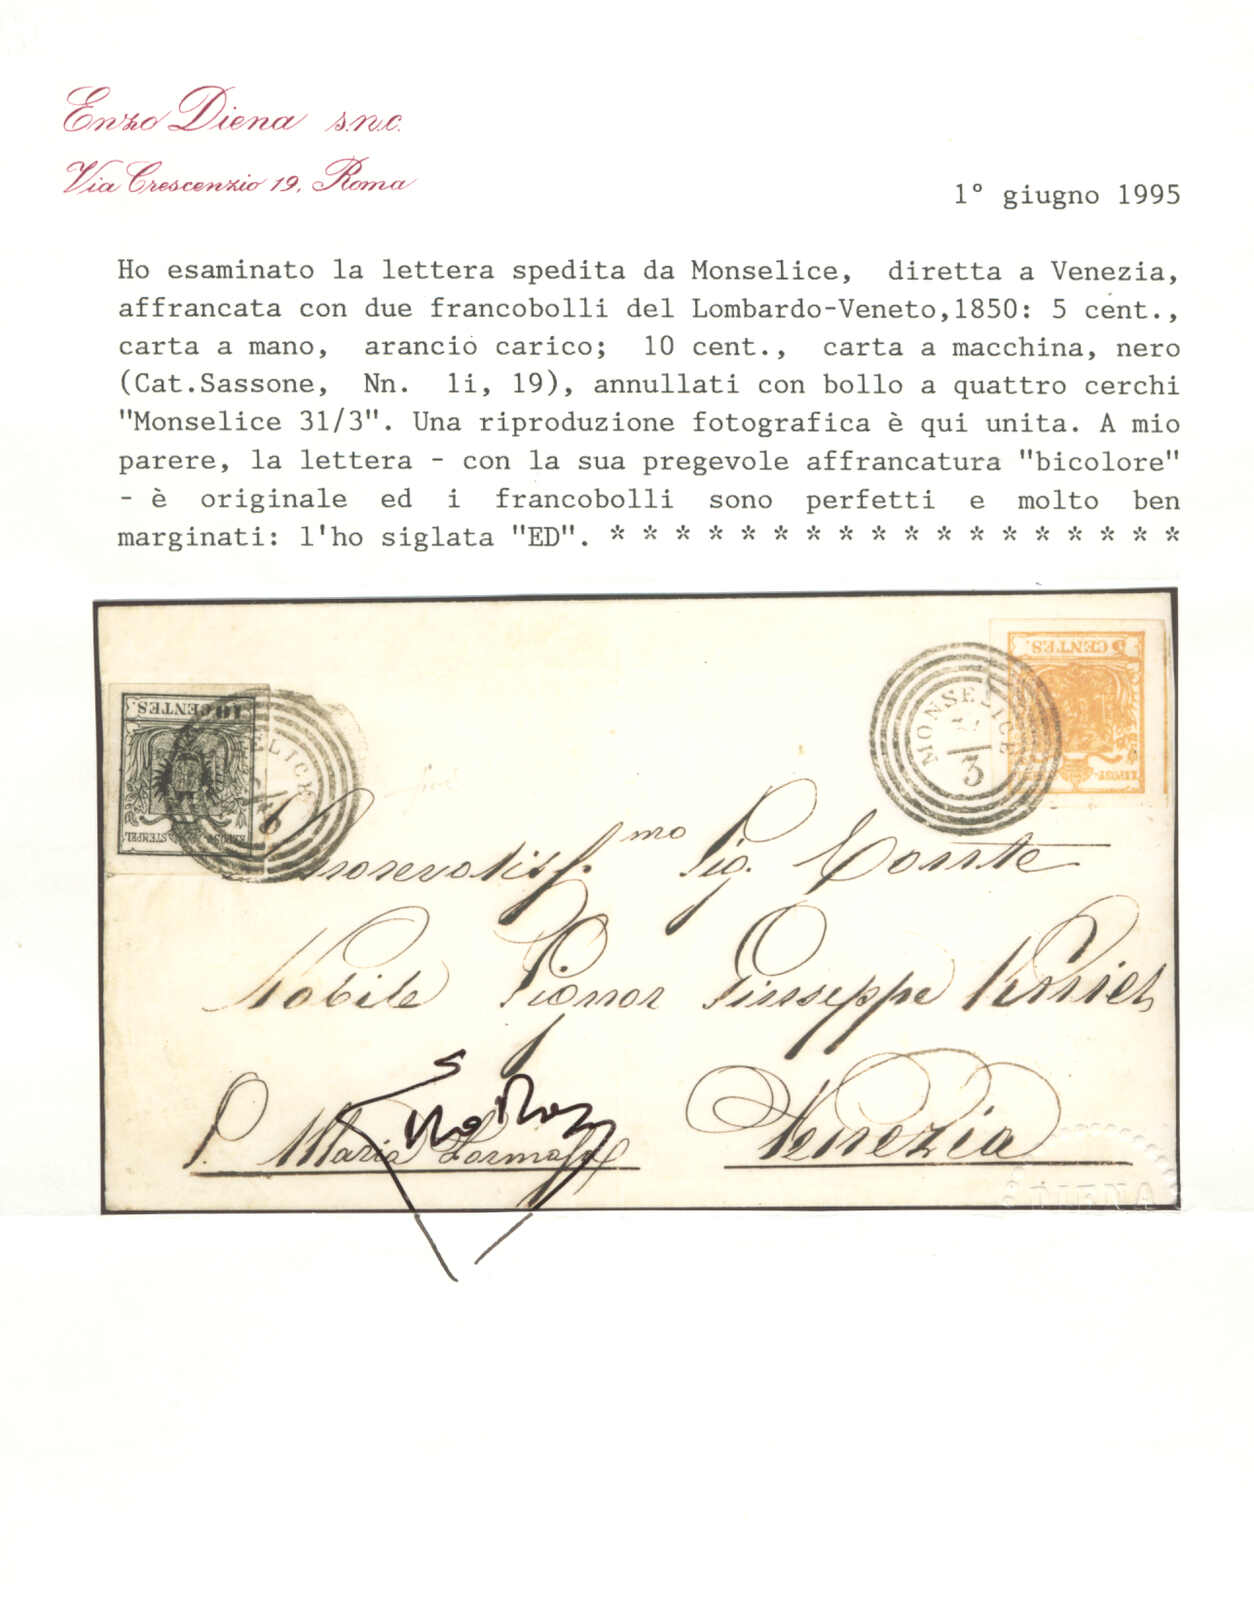 Enzo Diena s.n.c.
Via Crescenzio 19, Roma
1° giugno 1995
Ho esaminato la lettera spedita da Monselice, diretta a Venezia,
affrancata con due francobolli del Lombardo-Veneto,1850: 5 cent.,
carta a mano, arancio carico; 10 cent., carta a macchina, nero
(Cat.Sassone, Nn. 1i, 19), annullati con bollo a quattro cerchi
"Monselice 31/3". Una riproduzione fotografica è qui unita. A mio
parere, la lettera - con la sua pregevole affrancatura "bicolore"
- è originale ed i francobolli sono perfetti e molto ben
marginati: l'ho siglata "ED". * * * * * * * * * * * * * * * * * *
5 CENTES.
KPOST-
MONSELICE
3
10 CENTES.
STEMPEL
ELICE
mo Sig. Conte
Nobile Signor Giuseppe
P. Maria
Venezia
DIENA